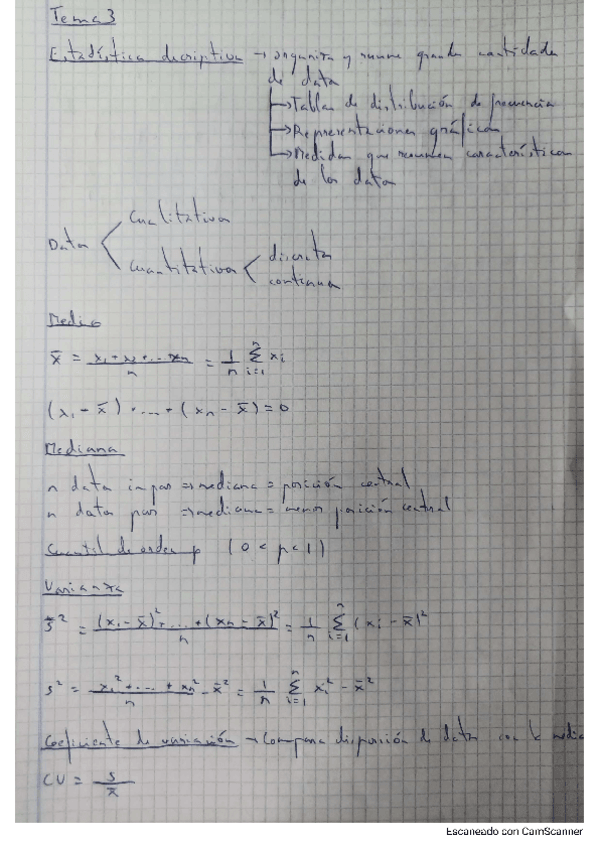 Tema 3
Estadística descriptiva → organiza y resume grandes cantidades
de datos
→ Tablas de distribución de frecuencia
→ Representaciones gráficas
→ Medidas que resumen características
de los datos
Datos < Cualitativos
Cuantitativos < discretos
continuos
Media
x̄ = (x₁ + x₂ + ... + xₙ) / n = 1/n Σᵢ₌₁ⁿ xᵢ
(x₁ - x̄) + ... + (xₙ - x̄) = 0
Mediana
n datos impar ⇒ mediana = posición central
n datos par ⇒ mediana = menor posición central
Cuantil de orden p (0 < p < 1)
Varianza
s² = ((x₁ - x̄)² + ... + (xₙ - x̄)²) / n = 1/n Σᵢ₌₁ⁿ (xᵢ - x̄)²
s² = (x₁² + ... + xₙ²) / n - x̄² = 1/n Σᵢ₌₁ⁿ xᵢ² - x̄²
Coeficiente de variación → Compara dispersión de datos con la media
CV = s / x̄
Escaneado con CamScanner